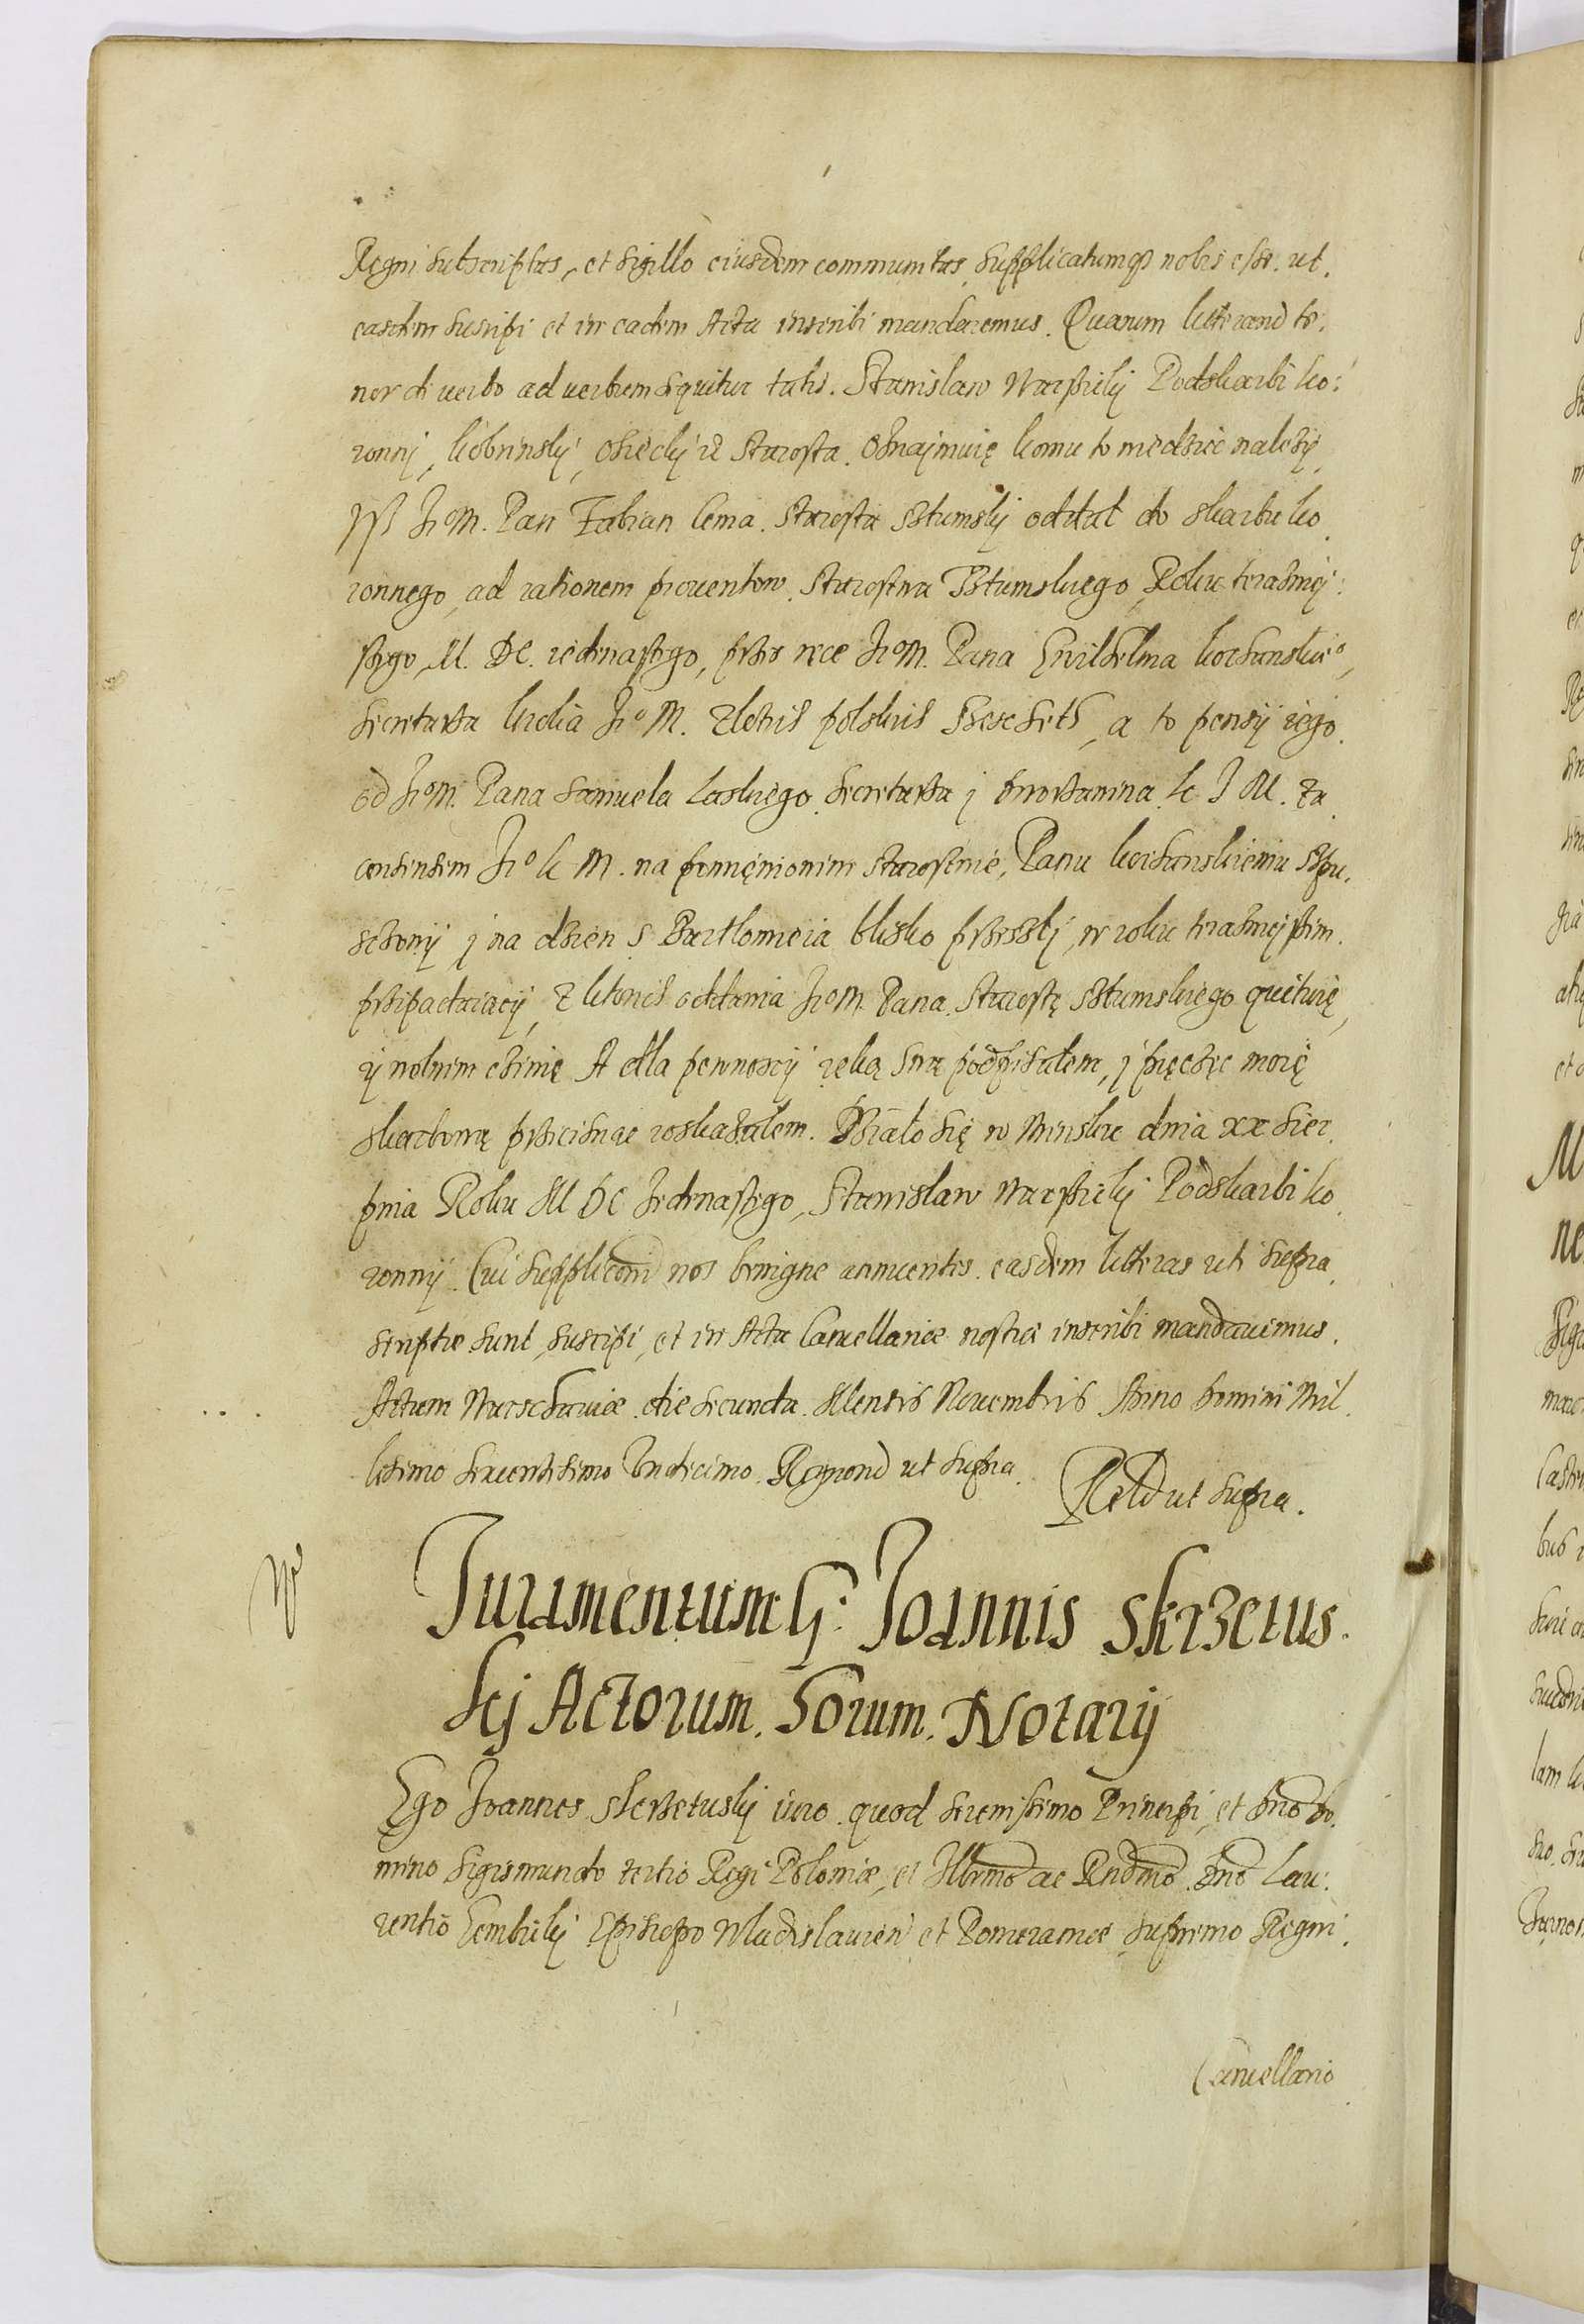 Regni subscriptas, et sigillo eiusdem communitas, supplicatumq3 nobis esse. ut
easdem suscipi et in eadem Acta inscribi mandaremus. Quarum litterarum te:
nor de uerbo ad uerbum sequitur talis. Stanislaw Warszicky Podskarbi ko:
ronny, kobrinsky, starosta. Oznajmuię komu to wiedziec nalezy
Jsz Jeo M. Pan Fabian Cema. starosta Sztumsky oddał do skarbu ko
ronnego, ad rationem prouentow. Starostwa Sztumskiego, Roku teraźniej:
szego, M. DC. iedenastego, przez ręce Jeo M. Pana Gwilhelma korhanskieo,
Secretarza krola Jeo M. zlotich polskich szescset, a to pensij iego
od Jeo M. Pana Samuela Laskiego Secretarza j dworzanina k J M. za
consensem Jeo k M. na pomięnionim starostwie, Panu korhanskiemu spu.
sczony j na dzien S Bartlomieia blisko przeszly, w roku teraźniejszim
przipadaiący, z ktorich oddania Jeo M. Pana Starostę Sztumskiego quituię,
ij wolnim czinię A dla pewnoscij ręką swą podpisalem, j pięczęc moię
skarbową przicisnąc roskazalem. Dzialo się w Minsku dnia xx Sier
pnia Roku M DC Jedenastego, Stanislaw Warszicky Podskarbi ko
ronny. Cui suppliconi nos benigne annuentes. easdem litteras uti supra
scriptæ sunt, suscipi, et in Acta Cancellariæ nostræ inscribi mandauimus.
Actum Warschauiæ die secunda. Mensis Nouembris Anno Domini Mil
lesimo sexcentesimo Vndecimo. Regnorum ut supra.
Relõ ut supra.
Juramentum G: Joannis Skrzetus.
kij Actorum. Horum. Notarij
Ego Joannes Skrzetusky iuro quod serenissimo Principi, et Dno Do
mino Sigismundo tertio Regi Poloniæ, et Illrmo ac Rndmo Dno Lau:
rentio Gembicky Episcopo Wladislauien et Pomeraniæ Supremo Regni
Cancellario